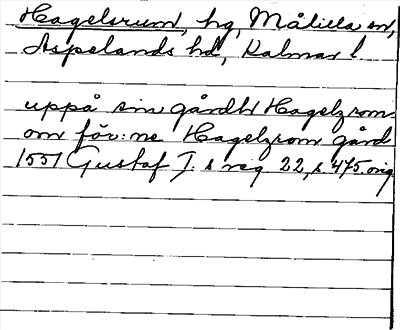 Hagelsrum, hg, Målilla sn,
Aspelands hd, Kalmar l
uppå sin gårdh Hagelzrom
om för:ne Hagelzrom gård
1551 Gustaf I:s reg 22, s 475 orig